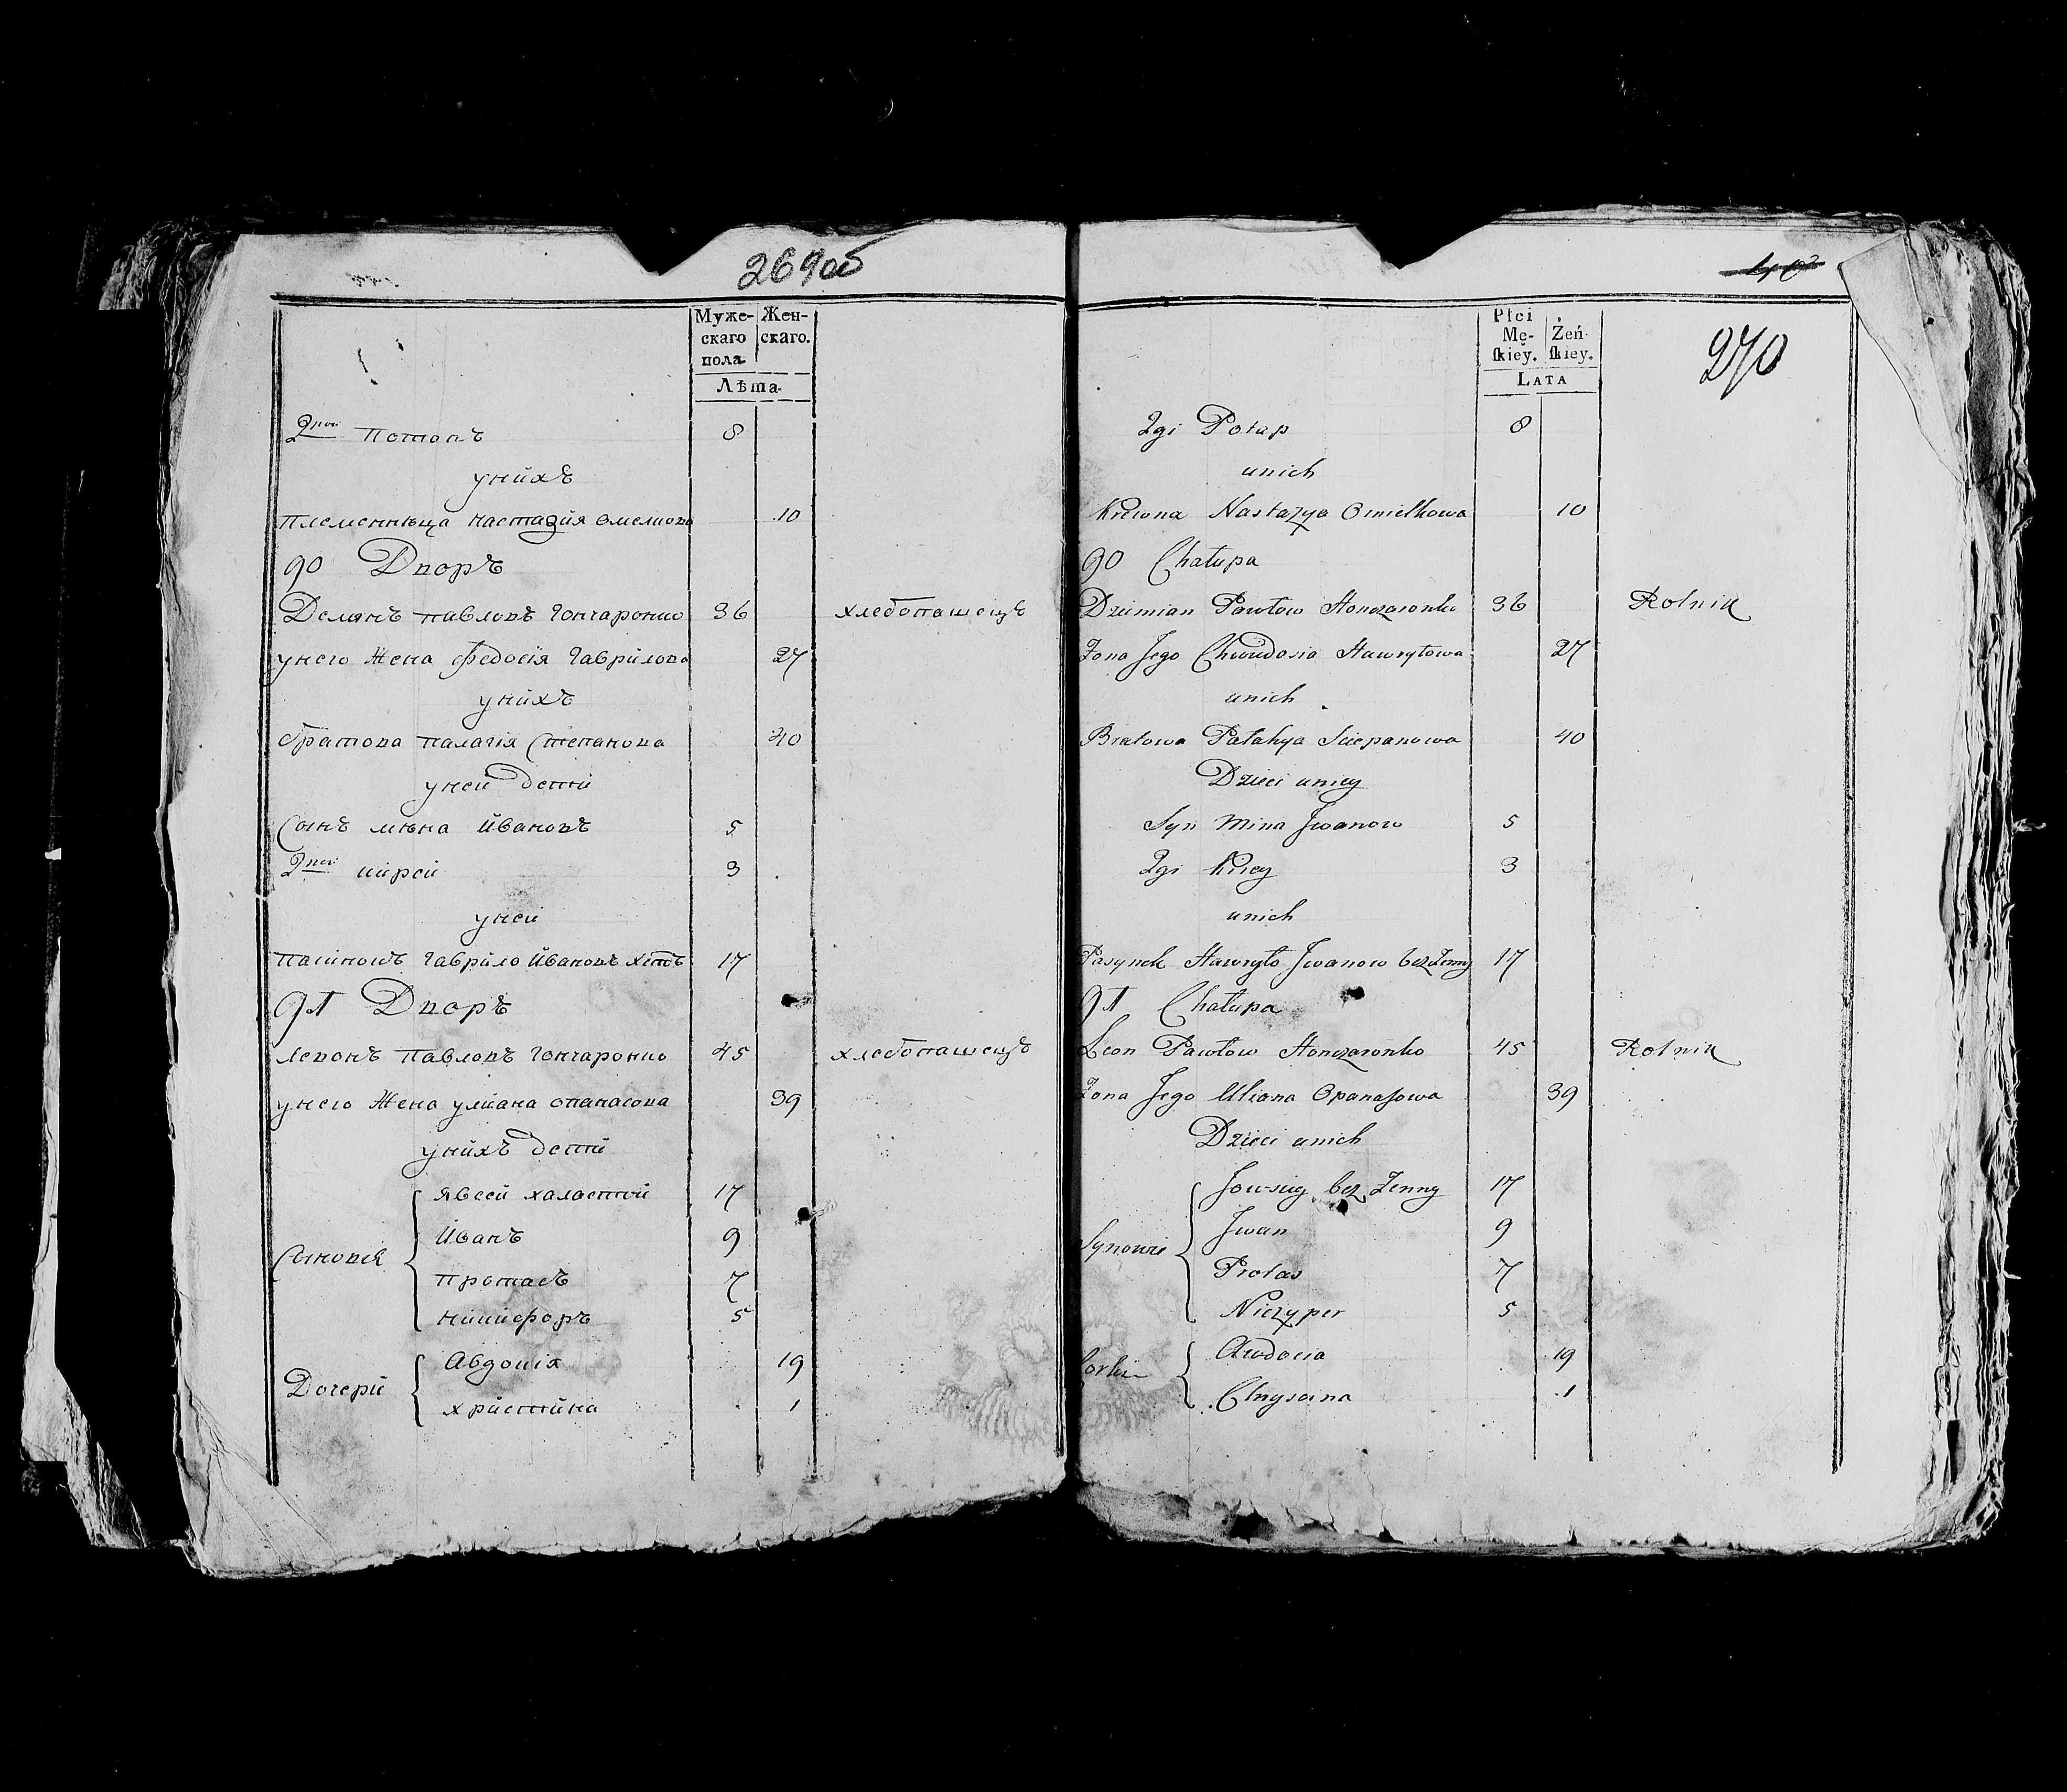 269об
Муже- Жен-
скаго скаго.
пола
Лѣта.
2рой Потапъ 8
унйхъ
племеннѣца настазйя омелкова 10
90 Дворъ
Демянъ павловъ Гончаронко 36 хлебопашецъ
унего жена федосія Гаврйлова 27
унйхъ
братова палагія Степанова 40
уней детй
Сынъ мѣна йвановъ 5
2рой кірей 3
уней
пасінокъ Гаврйло йвановъ хстъ 17
91 Дворъ
левонъ павловъ Гончаронко 45 хлебопашецъ
унего жена уліана опанасова 39
унйхъ детй
Сыновія
явсей халостой 17
йванъ 9
протасъ 7
нічйфоръ 5
Дочерй
Авдоція 19
хрйстйна 1
270
Płci
Mę- Żeń-
skiey. skiey.
LATA
2gi Potap 8
unich
Krewna Nastazya Omielkowa 10
90 Chałupa
Dziemian Pawłow Honczaronko 36 Rolnik
Zona Jego Chwiedosia Hawryłowa 27
unich
Bratowa Pałahya Sciepanowa 40
Dzieci uniey
Syn Mina Jwanow 5
2gi Kirey 3
unich
Pasynek Hawryło Jwanow bez Zenny 17
91 Chałupa
Leon Pawłow Honczaronko 45 Rolnik
Zona Jego Uliana Opanasowa 39
Dzieci unich
Synowie
Jowsiey bez Zenny 17
Jwan 9
Protas 7
Niczyper 5
Corki
Awdocia 19
Chryscina 1